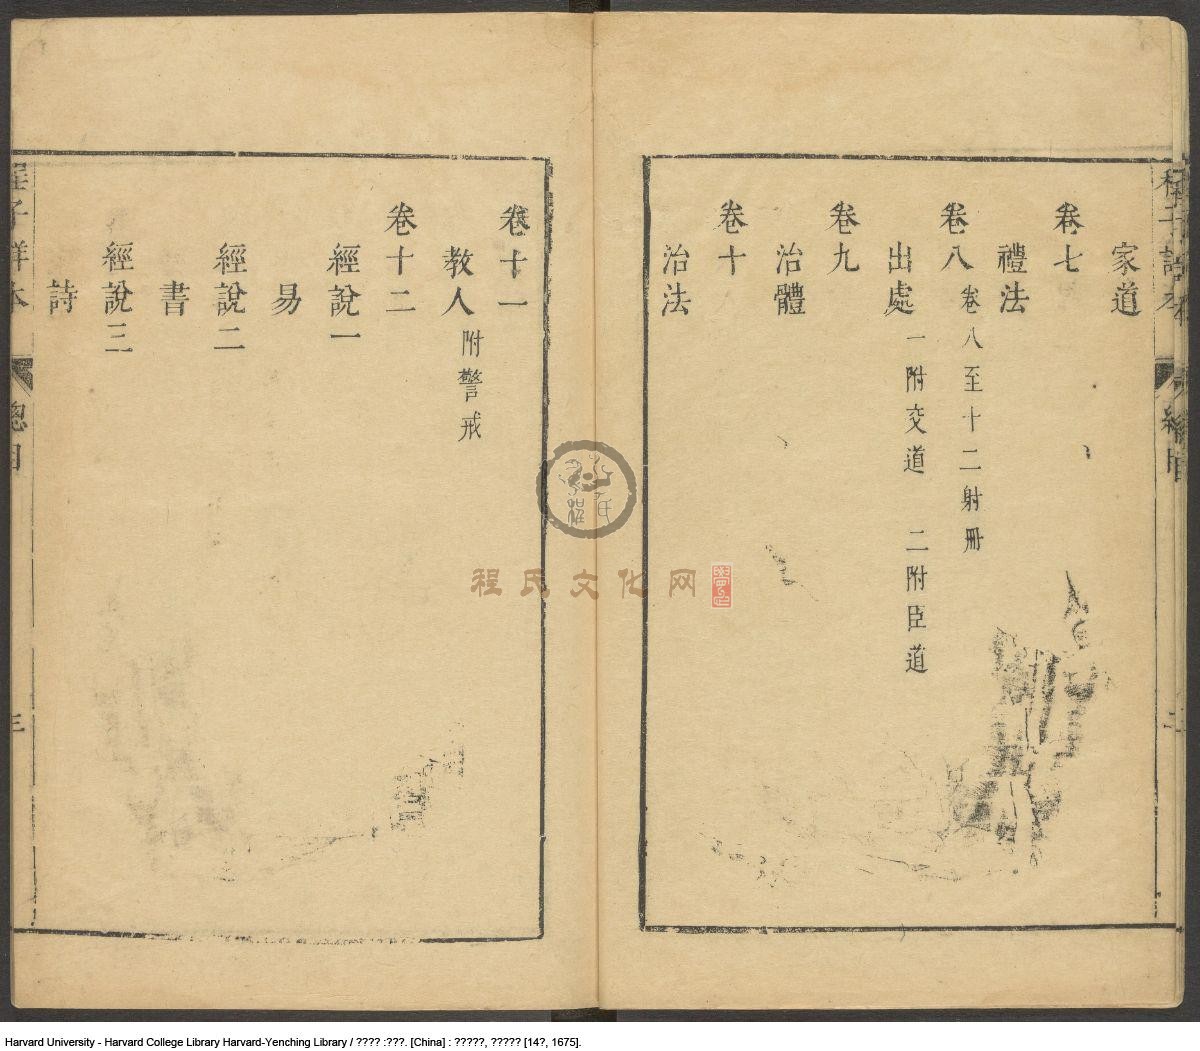 家道
卷七
禮法
卷八 卷八至十二射册
出處 一附交道 二附臣道
卷九
治體
卷十
治法
卷十一
教人 附警戒
卷十二
經說一
易
經說二
書
經說三
詩
程子詳本
總目
三
程氏文化网
Harvard University - Harvard College Library Harvard-Yenching Library / ???? :???. [China] : ?????, ????? [14?, 1675].